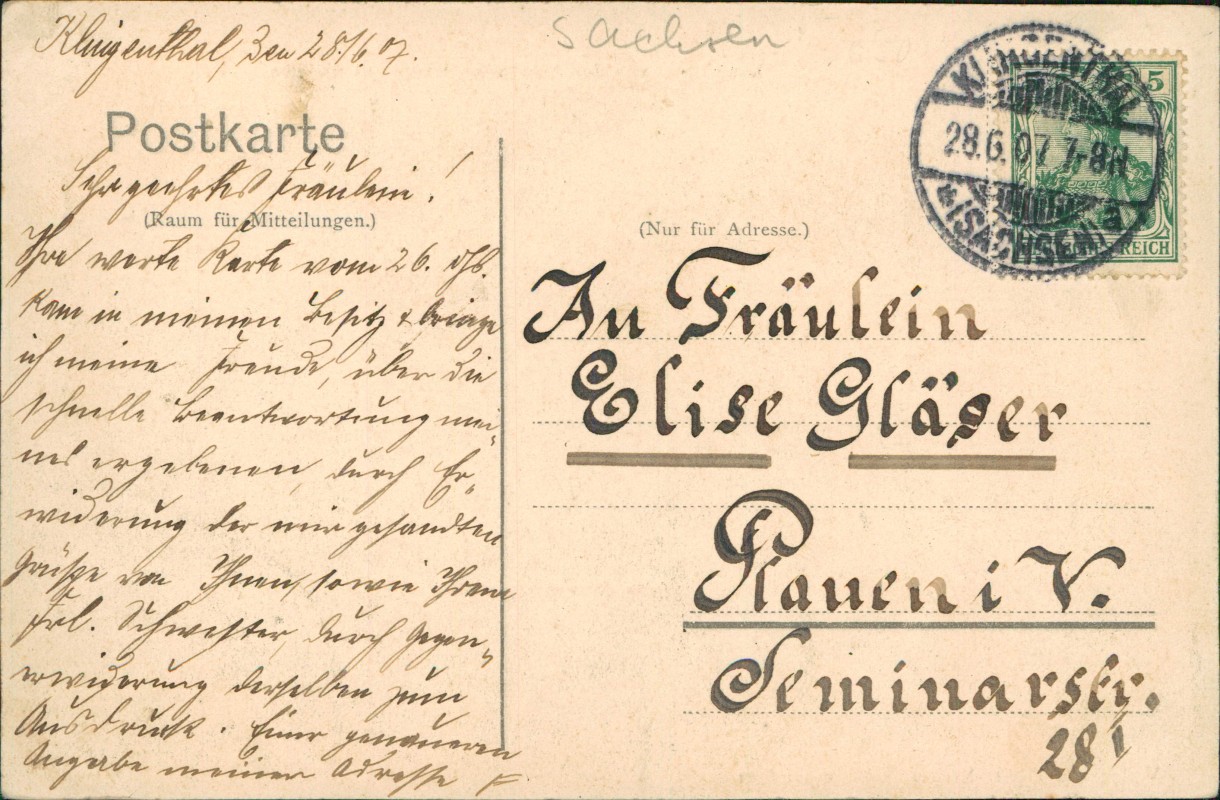 Klingenthal, den 28./6. 07.
Sachsen
Postkarte
Sehr geehrtes Fräulein!
(Raum für Mitteilungen.)
Ihre werte Karte vom 26. ds.
kam in meinen Besitz & bringe
ich meine Freude, über die
schnelle Beantwortung mei-
nes ergebenen, durch Er-
widerung der mir gesandten
Grüsse von Ihnen, sowie Ihrem
Frl. Schwester, durch Gegen-
erwiderung derselben zum
Ausdruck. Einer genaueren
Angabe meiner Adresse
KLINGENTHAL
28.6.07. 7-8N
(SACHSEN)
5
REICH
(Nur für Adresse.)
An Fräulein
Elise Gläser
Plauen i V.
Seminarstr.
28